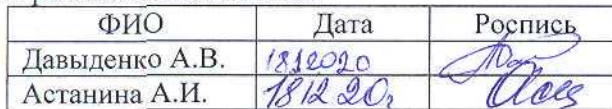 ФИО Дата Роспись
Давыденко А.В. 18122020
Астанина А.И. 18.12.20